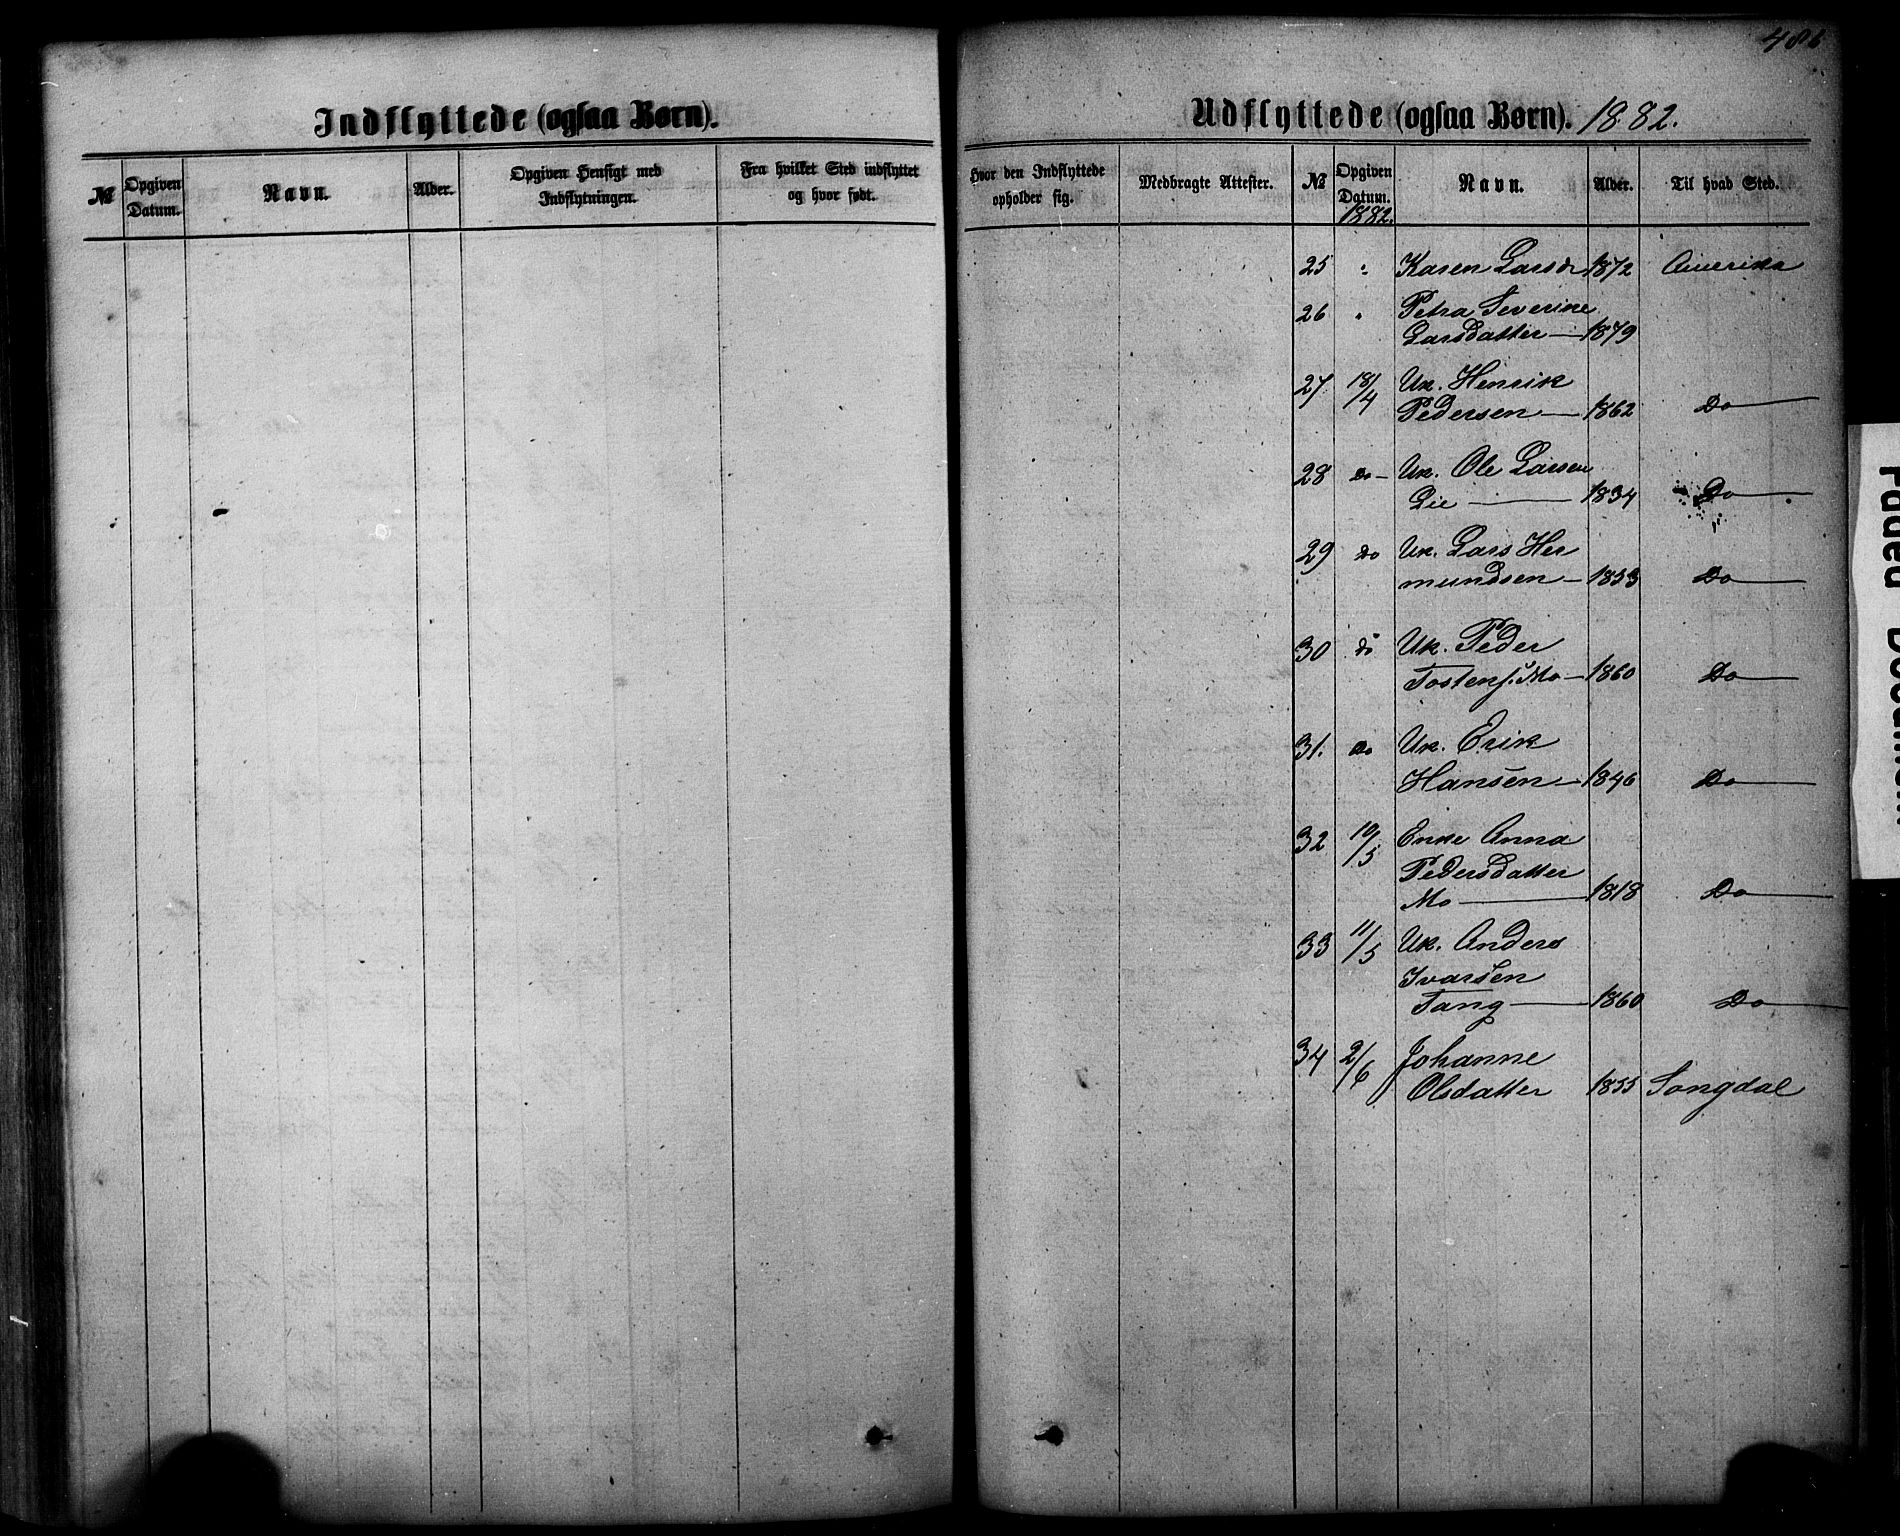 486
Indflyttede (ogsaa Børn).
№ Opgiven Datum. Navn. Alder. Opgiven Hensigt med Indflytningen. Fra hvilket Sted indflyttet og hvor født.
Udflyttede (ogsaa Børn). 1882.
Hvor den Indflyttede opholder sig. Medbragte Attester. № Opgiven Datum. 1882. Navn. Alder. Til hvad Sted.
25 " Karen Larsdr 1872 Amerika
26 " Petra Severine
Larsdatter — 1879
27 18/4 Uk. Henrik
Pedersen — 1862 Do —
28 Do — Uk. Ole Larsen
Lie — 1834 Do —
29 Do Uk. Lars Her
mundsen — 1853 Do —
30 do Uk. Peder
Tostens. Mo — 1860 Do —
31. Do Uk. Erik
Hansen — 1846 Do —
32 10/5 Enke Anna
Pedersdatter
Mo — 1818 Do —
33 11/5 Uk. Anders
Ivarsen
Tang — 1860 Do —
34 2/6 Johanne
Olsdatter 1855 Songdal
Faded Document